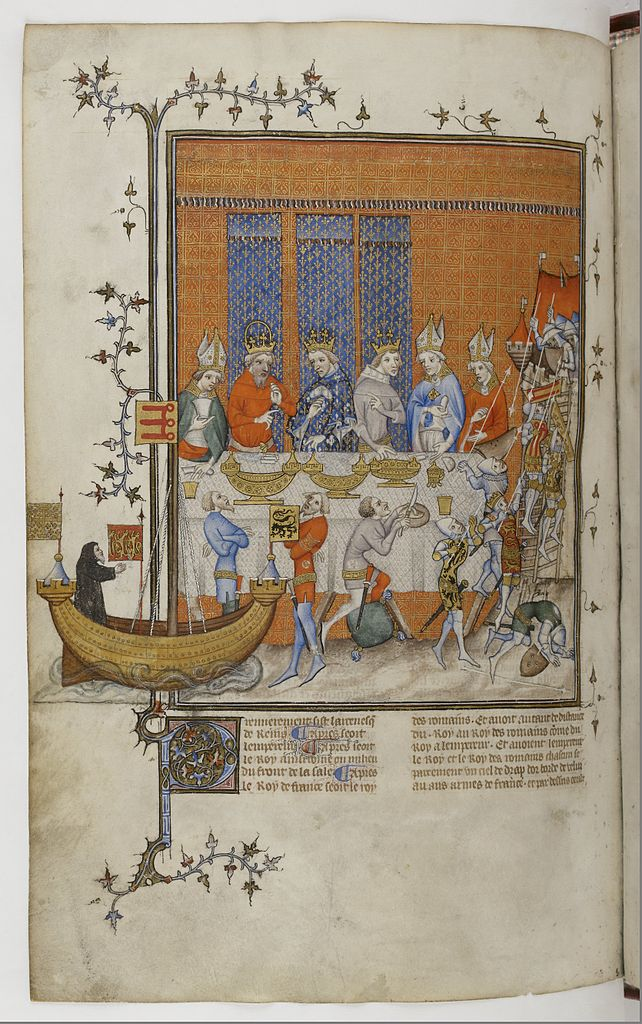 Premierement sist larcevesq
de Reins Apres seoit
lempereur Apres seoit
le Roy ou milieu
du front de la sale Apres
le Roy de france seoit le roy
des romains. Et avoit autant de distance
du Roy au Roy des romains cōme du
Roy a lempereur. Et avoient lempereur
le Roy et le Roy des romains chascun se
pareement un ciel de drap dor borde de velui
au aus armes de france. et par dessus ceulz